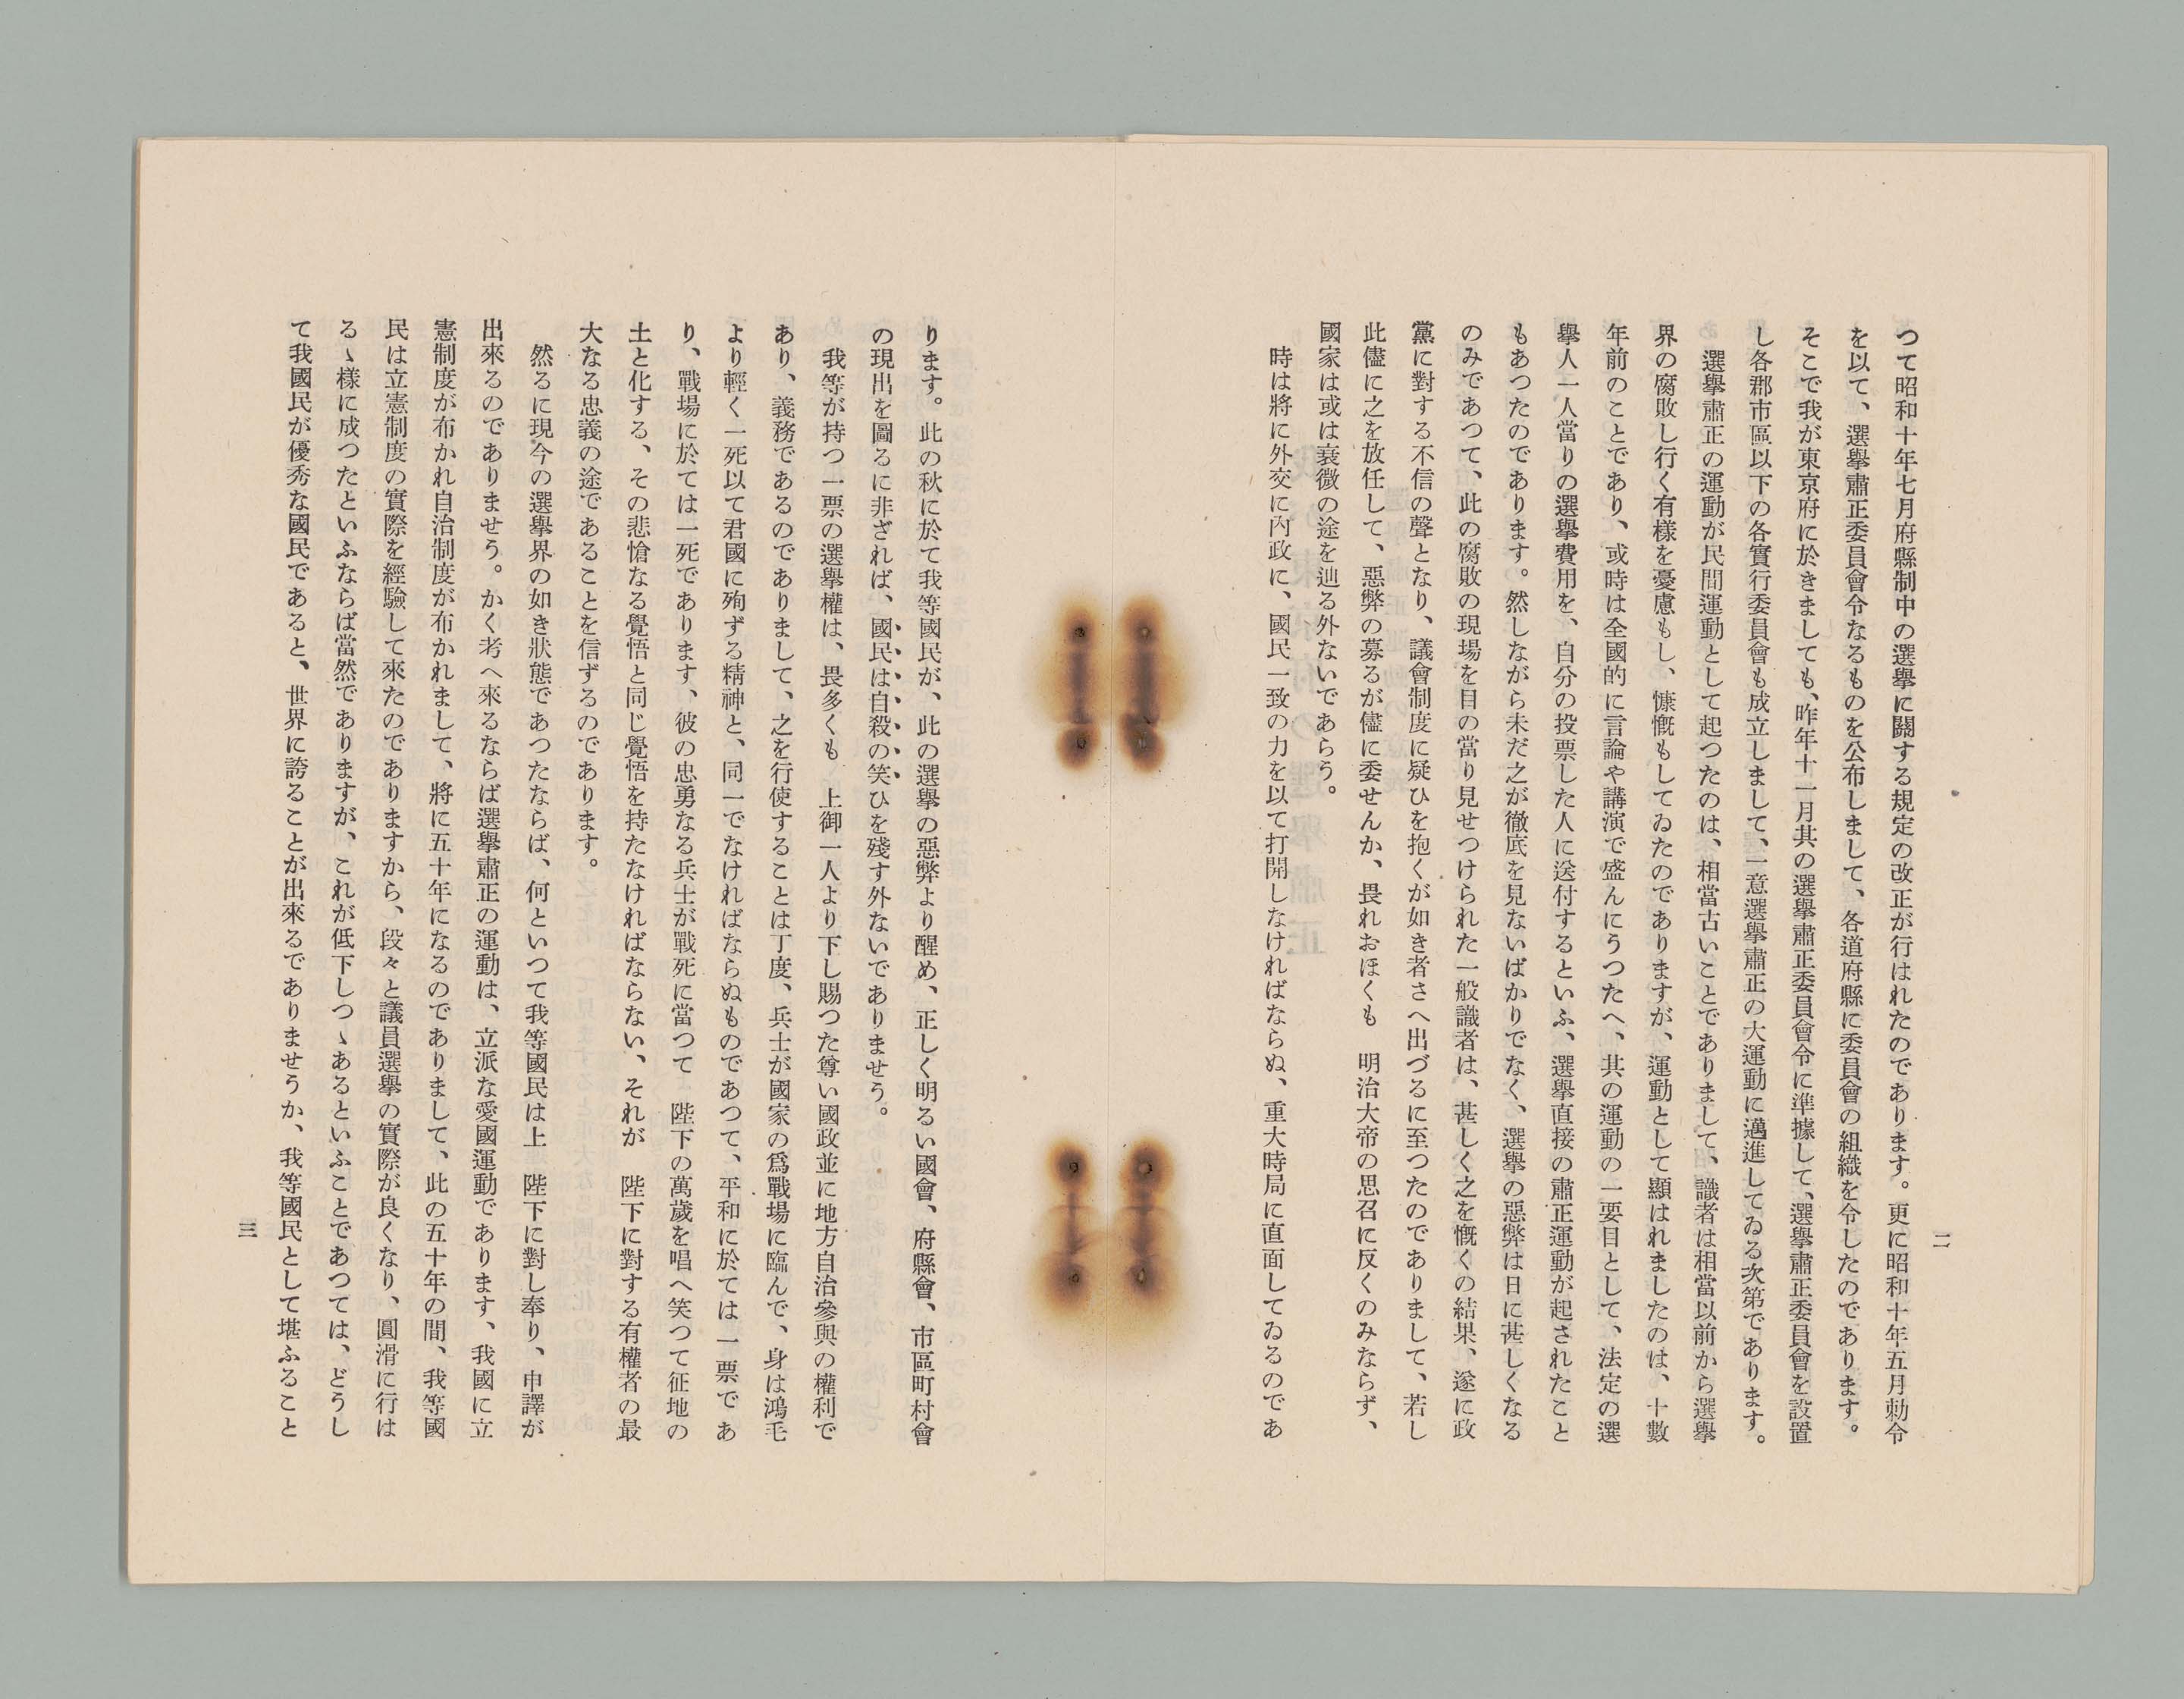 二
つて昭和十年七月府縣制中の選擧に關する規定の改正が行はれたのであります。更に昭和十年五月勅令
を以て、選擧肅正委員會令なるものを公布しまして、各道府縣に委員會の組織を令したのであります。
そこで我が東京府に於きましても、昨年十一月其の選擧肅正委員會令に準據して、選擧肅正委員會を設置
し各郡市區以下の各實行委員會も成立しまして、一意選擧肅正の大運動に邁進してゐる次第であります。
選擧肅正の運動が民間運動として起つたのは、相當古いことでありまして、識者は相當以前から選擧
界の腐敗し行く有樣を憂慮もし、慷慨もしてゐたのでありますが、運動として顯はれましたのは、十數
年前のことであり、或時は全國的に言論や講演で盛んにうつたへ、其の運動の一要目として、法定の選
擧人一人當りの選擧費用を、自分の投票した人に送付するといふ、選擧直接の肅正運動が起されたこと
もあつたのであります。然しながら未だ之が徹底を見ないばかりでなく、選擧の惡弊は日に甚しくなる
のみであつて、此の腐敗の現場を目の當り見せつけられた一般識者は、甚しく之を慨くの結果、遂に政
黨に對する不信の聲となり、議會制度に疑ひを抱くが如き者さへ出づるに至つたのでありまして、若し
此儘に之を放任して、惡弊の募るが儘に委せんか、畏れおほくも　明治大帝の思召に反くのみならず、
國家は或は衰微の途を辿る外ないであらう。
時は將に外交に內政に、國民一致の力を以て打開しなければならぬ、重大時局に直面してゐるのであ
ります。此の秋に於て我等國民が、此の選擧の惡弊より醒め、正しく明るい國會、府縣會、市區町村會
の現出を圖るに非ざれば、國民は自殺の笑ひを殘す外ないでありませう。
我等が持つ一票の選擧權は、畏多くも　上御一人より下し賜つた尊い國政並に地方自治參與の權利で
あり、義務であるのでありまして、之を行使することは丁度、兵士が國家の爲戰場に臨んで、身は鴻毛
より輕く一死以て君國に殉ずる精神と、同一でなければならぬものであつて、平和に於ては一票であ
り、戰場に於ては一死であります、彼の忠勇なる兵士が戰死に當つて　陛下の萬歲を唱へ笑つて征地の
土と化する、その悲愴なる覺悟と同じ覺悟を持たなければならない、それが　陛下に對する有權者の最
大なる忠義の途であることを信ずるのであります。
然るに現今の選擧界の如き狀態であつたならば、何といつて我等國民は上　陛下に對し奉り、申譯が
出來るのでありませう。かく考へ來るならば選擧肅正の運動は、立派な愛國運動であります、我國に立
憲制度が布かれ自治制度が布かれまして、將に五十年になるのでありまして、此の五十年の間、我等國
民は立憲制度の實際を經驗して來たのでありますから、段々と議員選擧の實際が良くなり、圓滑に行は
るゝ樣に成つたといふならば當然でありますが、これが低下しつゝあるといふことであつては、どうし
て我國民が優秀な國民であると、世界に誇ることが出來るでありませうか、我等國民として堪ふること
三